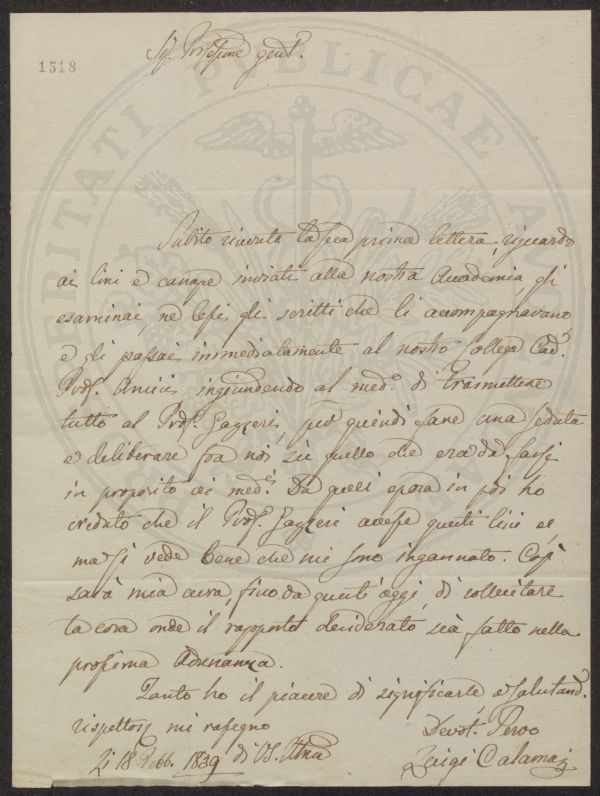 1518
Sig. Professore gent.
Subito ricevuta la sua prima lettera, riguardo
ai lini e canape inviati alla nostra Accademia, gli
esaminai, ne lessi gli scritti che li accompagnavano,
e gli passai immediatamente al nostro Collega Cav.
Prof. Amici ingiungendo al med. di trasmettere
tutto al Prof. Gazzeri, per quindi fare una seduta
e deliberare fra noi su quello che era da farsi
in proposito ai med. Da quell'epoca in poi ho
creduto che il Prof. Gazzeri avesse questi lini
ma si vede bene che mi sono ingannato. Così
sarà mia cura, fino da quest'oggi, di sollecitare
la cosa onde il rapporto desiderato sia fatto nella
prossima Adunanza.
Tanto ho il piacere di significarle, e salutand.
rispettos. mi rassegno
Li 18 Febb. 1839 di VS. Illma
Devot. Servo
Luigi Calamai
PROSPERITATI PUBLICAE AU